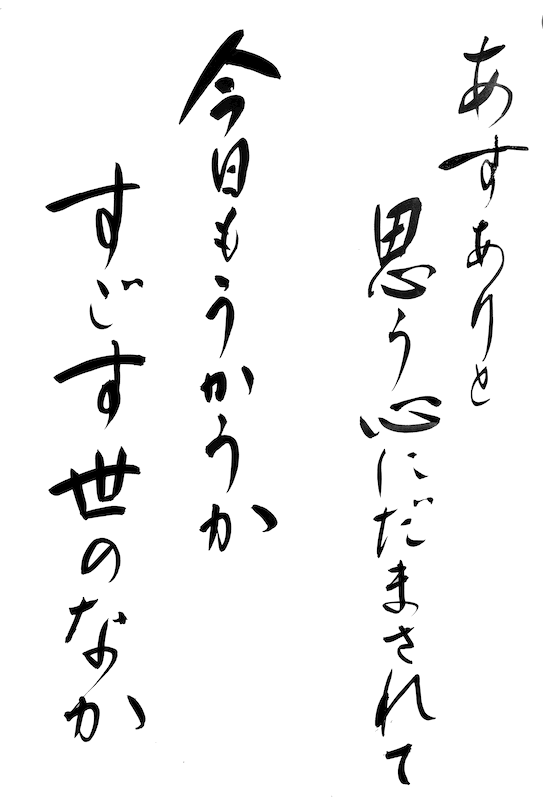 あすありと
思う心にだまされて
今日もうかうか
すごす世のなか